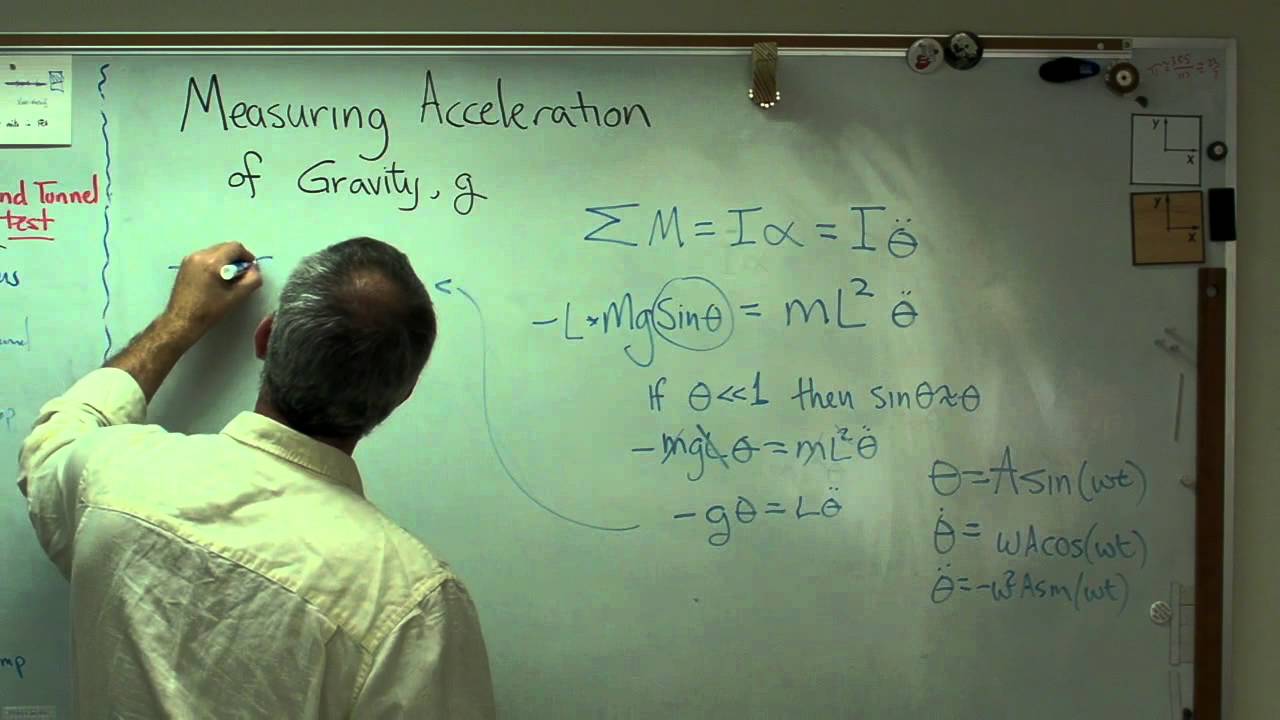 Measuring Acceleration
of Gravity, g
nd Tunnel
test
us
mp
ΣM = Iα = Iθ̈
-L*Mg sinθ = mL² θ̈
If θ<<1 then sinθ≈θ
-mgLθ = mL²θ̈
-gθ = Lθ̈
θ = A sin(wt)
θ̇ = wA cos(wt)
θ̈ = -w²A sin(wt)
Y
X
Y
X